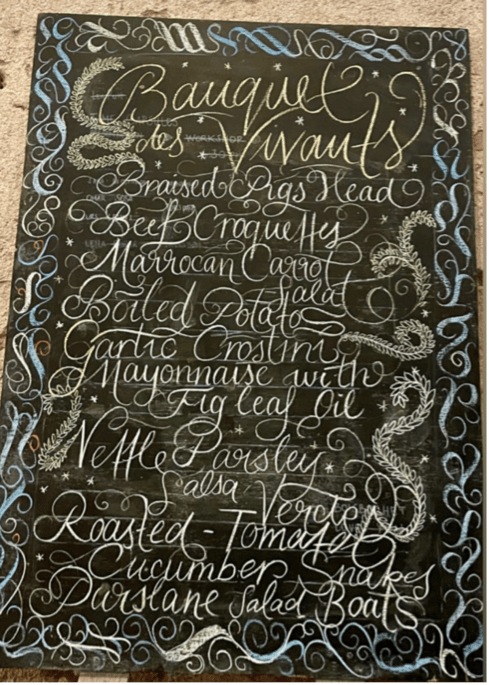 Banquet
des Vivants
Braised Pigs Head
Beef Croquettes
Marrocan Carrot
Salat
Boiled Potato
Garlic Crostini
Mayonnaise with
Fig leaf Oil
Nettle Parsley
Salsa Verde
Roasted-Tomato
Cucumber Snakes
Purslane Salad Boats